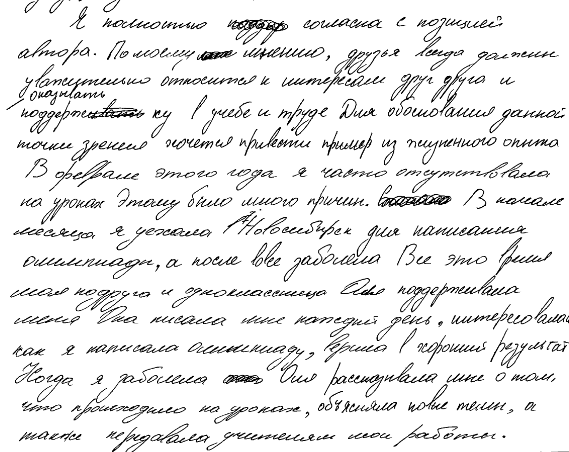 Я полностью согласна с позицией
автора. По моему мнению, друзья всегда должны
уважительно относится к интересам друг друга и
оказывать
поддержку в учебе и труде Для обоснования данной
точки зрения хочется привести пример из жизненного опыта
В феврале этого года я часто отсутствовала
на уроках Этому было много причин. В начале
месяца я уезжала в Новосибирск для написания
олимпиады, а после вовсе заболела Все это время
моя подруга и одноклассница Оля поддерживала
меня Она писала мне каждый день, интересовалась
как я написала олимпиаду, верила в хороший результат
Когда я заболела Оля рассказывала мне о том,
что происходило на уроках, объясняла новые темы, а
также передавала учителям мои работы.